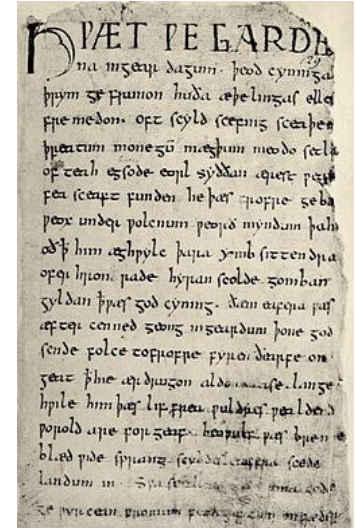 HǷÆT ǷE GARDE
129
na ingear dagum. þeod cyninga
þrym ge frunon huða æþelingas elle
fremedon. oft scyld scefing sceaþe
þreatum monegū mægþum meodo setla
of teah egsode eorl syððan ærest ƿear
fea sceaft funden he þæs frofre geba
ƿeox under ƿolcnum ƿeorð myndum þah
oð ꝥ him æghƿylc þara ymb sittendra
ofer hron rade hyran scolde gomban
gyldan ꝥ ƿæs god cyning. ðæm eafera ƿæs
æfter cenned geong ingeardum þone god
sende folce tofrofre fyren ðearfe on
geat ꝥ hie ær drugon aldor ase. lange
hƿile him þæs lif frea ƿuldres ƿealdend
ƿorold are for geaf. beoƿulf ƿæs breme
blæd ƿide sprang scyldes eafera scede
landum in. Sƿa sceal uma gode
ge ƿyrcean fromum feoh giftum